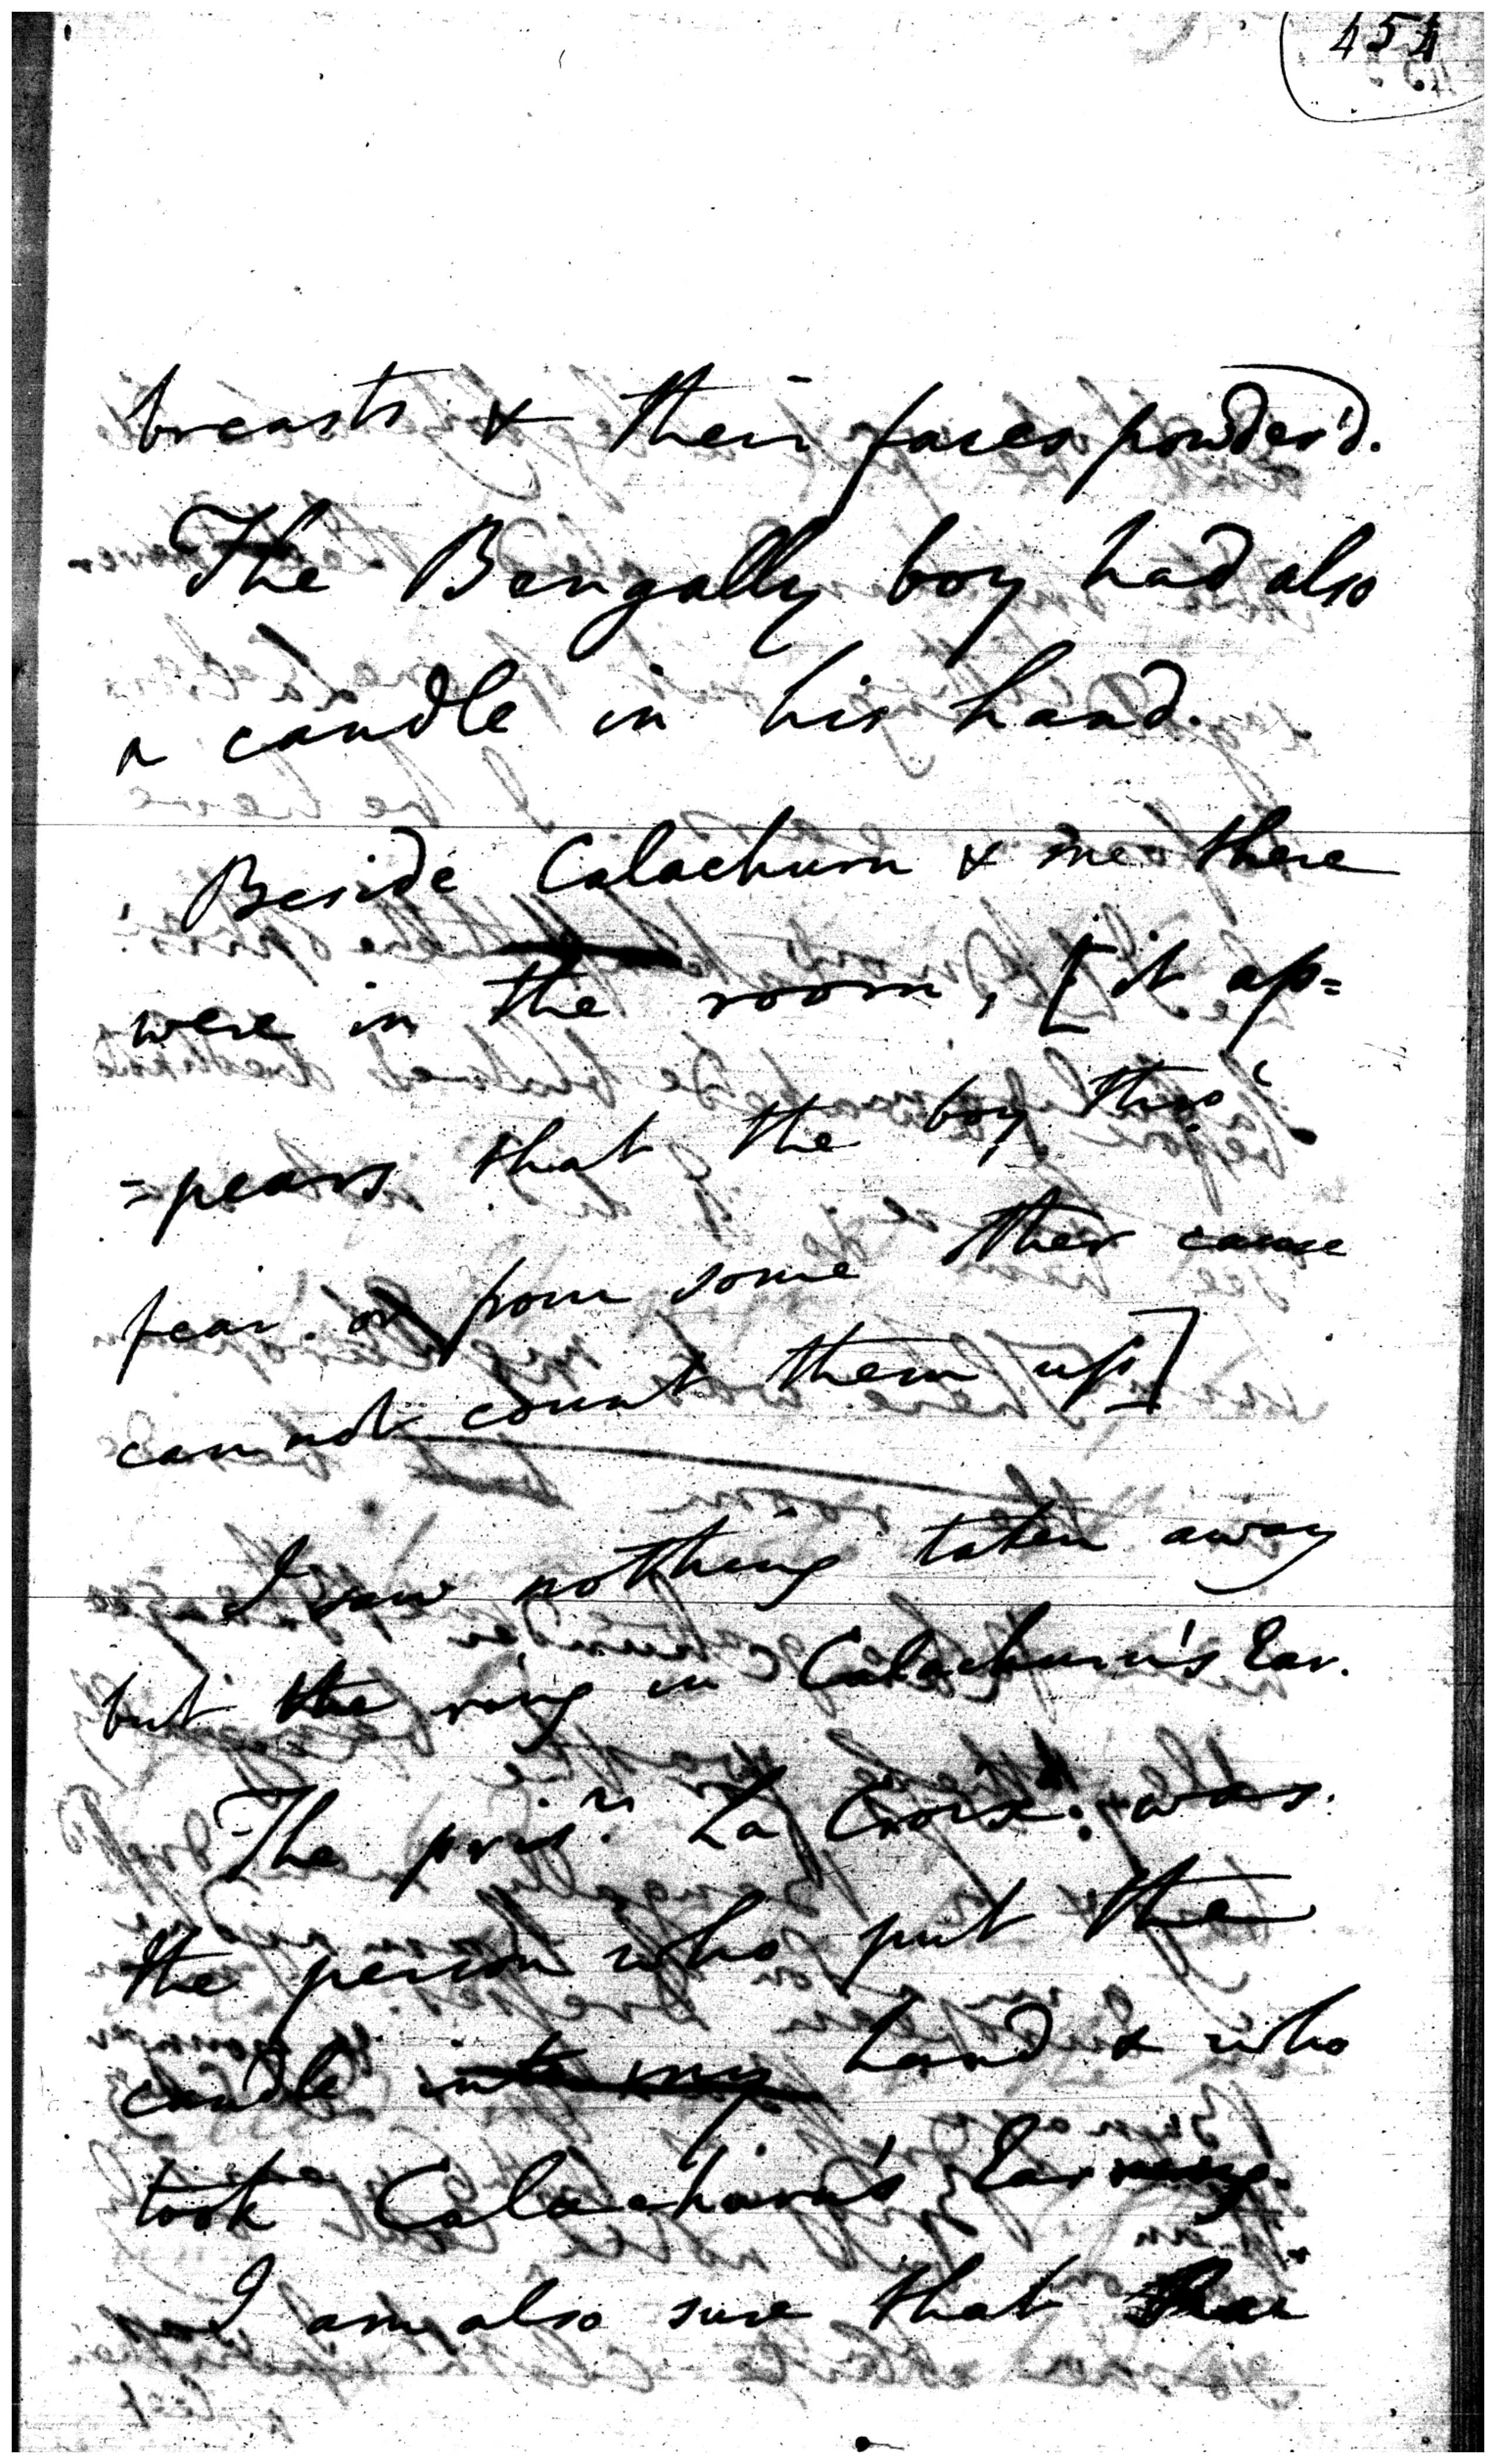 454
breasts & their faces powder'd.
The Bengally boy had also
a candle in his hand.
Beside Calachurn & me there
were in the room, [it ap=
=pears that the boy thro'
fear or from some other cause
cannot count them up]
I saw nothing taken away
but the ring in Calachurn's Ear.
The prisr. La Croix was
the person who put the
candle into my hand & who
took Calachurn's Earring.
I am also sure that